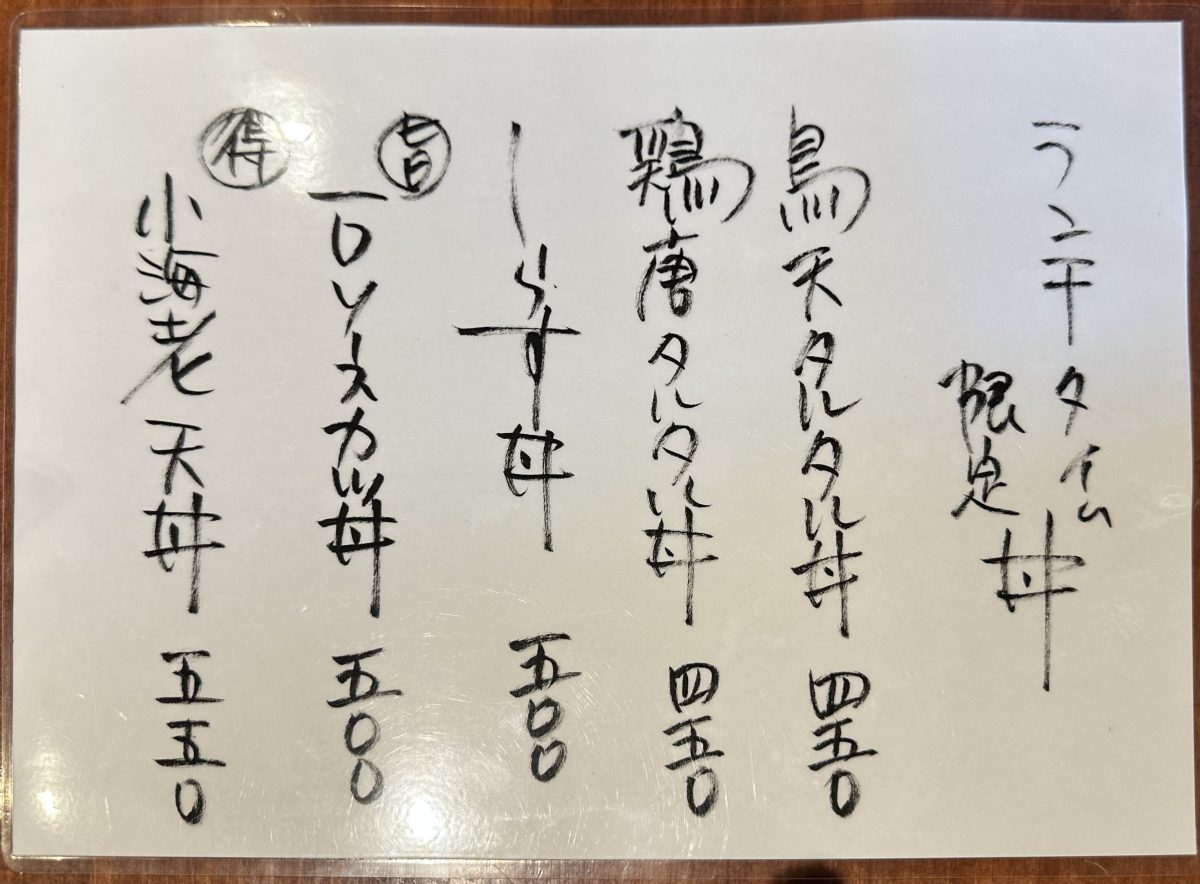 ランチタイム
限定丼
鳥天タルタル丼 四五〇
鶏唐タルタル丼 四五〇
しらす丼 五〇〇
旨 一口ソースカツ丼 五〇〇
得 小海老天丼 五五〇